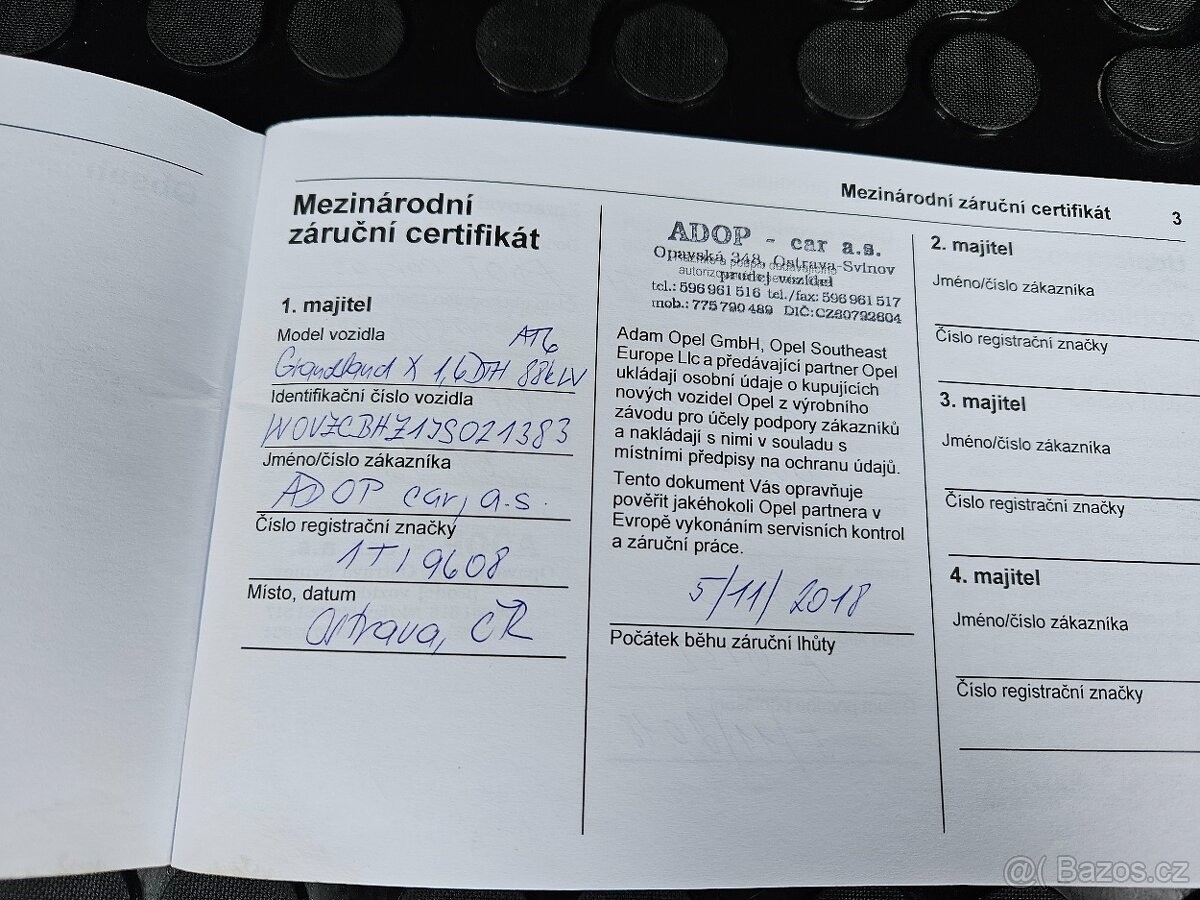 Mezinárodní záruční certifikát 3
Mezinárodní
záruční certifikát
1. majitel
Model vozidla
AT6
Grandland X 1,6DTH 88kW
Identifikační číslo vozidla
W0VZCBHZ1JS021383
Jméno/číslo zákazníka
ADOP car, a.s.
Číslo registrační značky
1TI 9608
Místo, datum
Ostrava, ČR
ADOP - car a.s.
Opavská 348, Ostrava-Svinov
prodej vozidel
tel.: 596 961 516 tel./fax: 596 961 517
mob.: 775 790 489 DIČ:CZ60792604
Adam Opel GmbH, Opel Southeast
Europe Llc a předávající partner Opel
ukládají osobní údaje o kupujících
nových vozidel Opel z výrobního
závodu pro účely podpory zákazníků
a nakládají s nimi v souladu s
místními předpisy na ochranu údajů.
Tento dokument Vás opravňuje
pověřit jakéhokoli Opel partnera v
Evropě vykonáním servisních kontrol
a záruční práce.
5/11/2018
Počátek běhu záruční lhůty
2. majitel
Jméno/číslo zákazníka
Číslo registrační značky
3. majitel
Jméno/číslo zákazníka
Číslo registrační značky
4. majitel
Jméno/číslo zákazníka
Číslo registrační značky
@( Bazos.cz